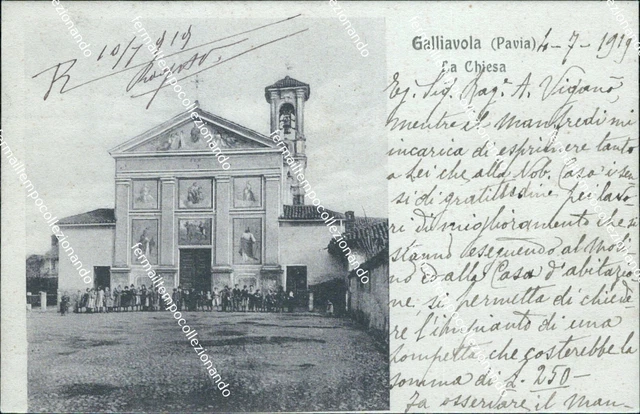 Galliavola (Pavia) 4-7-1919
La Chiesa
R 10/7 919
Eg. Sig. Rag. A. Viganò
mentre il Manfredi mi
incarica di esprimere tanto
a Lei che alla Nob. Casa i sen
si di gratitudine pei lavo
ri di miglioramento che si
stanno eseguendo al Moli
no e alla Casa d'abitazio
ne, si permetta di chiede
re l'impianto di una
pompetta che costerebbe la
somma di £. 250-
Fa osservare il Man-
fermailtempocollezionando